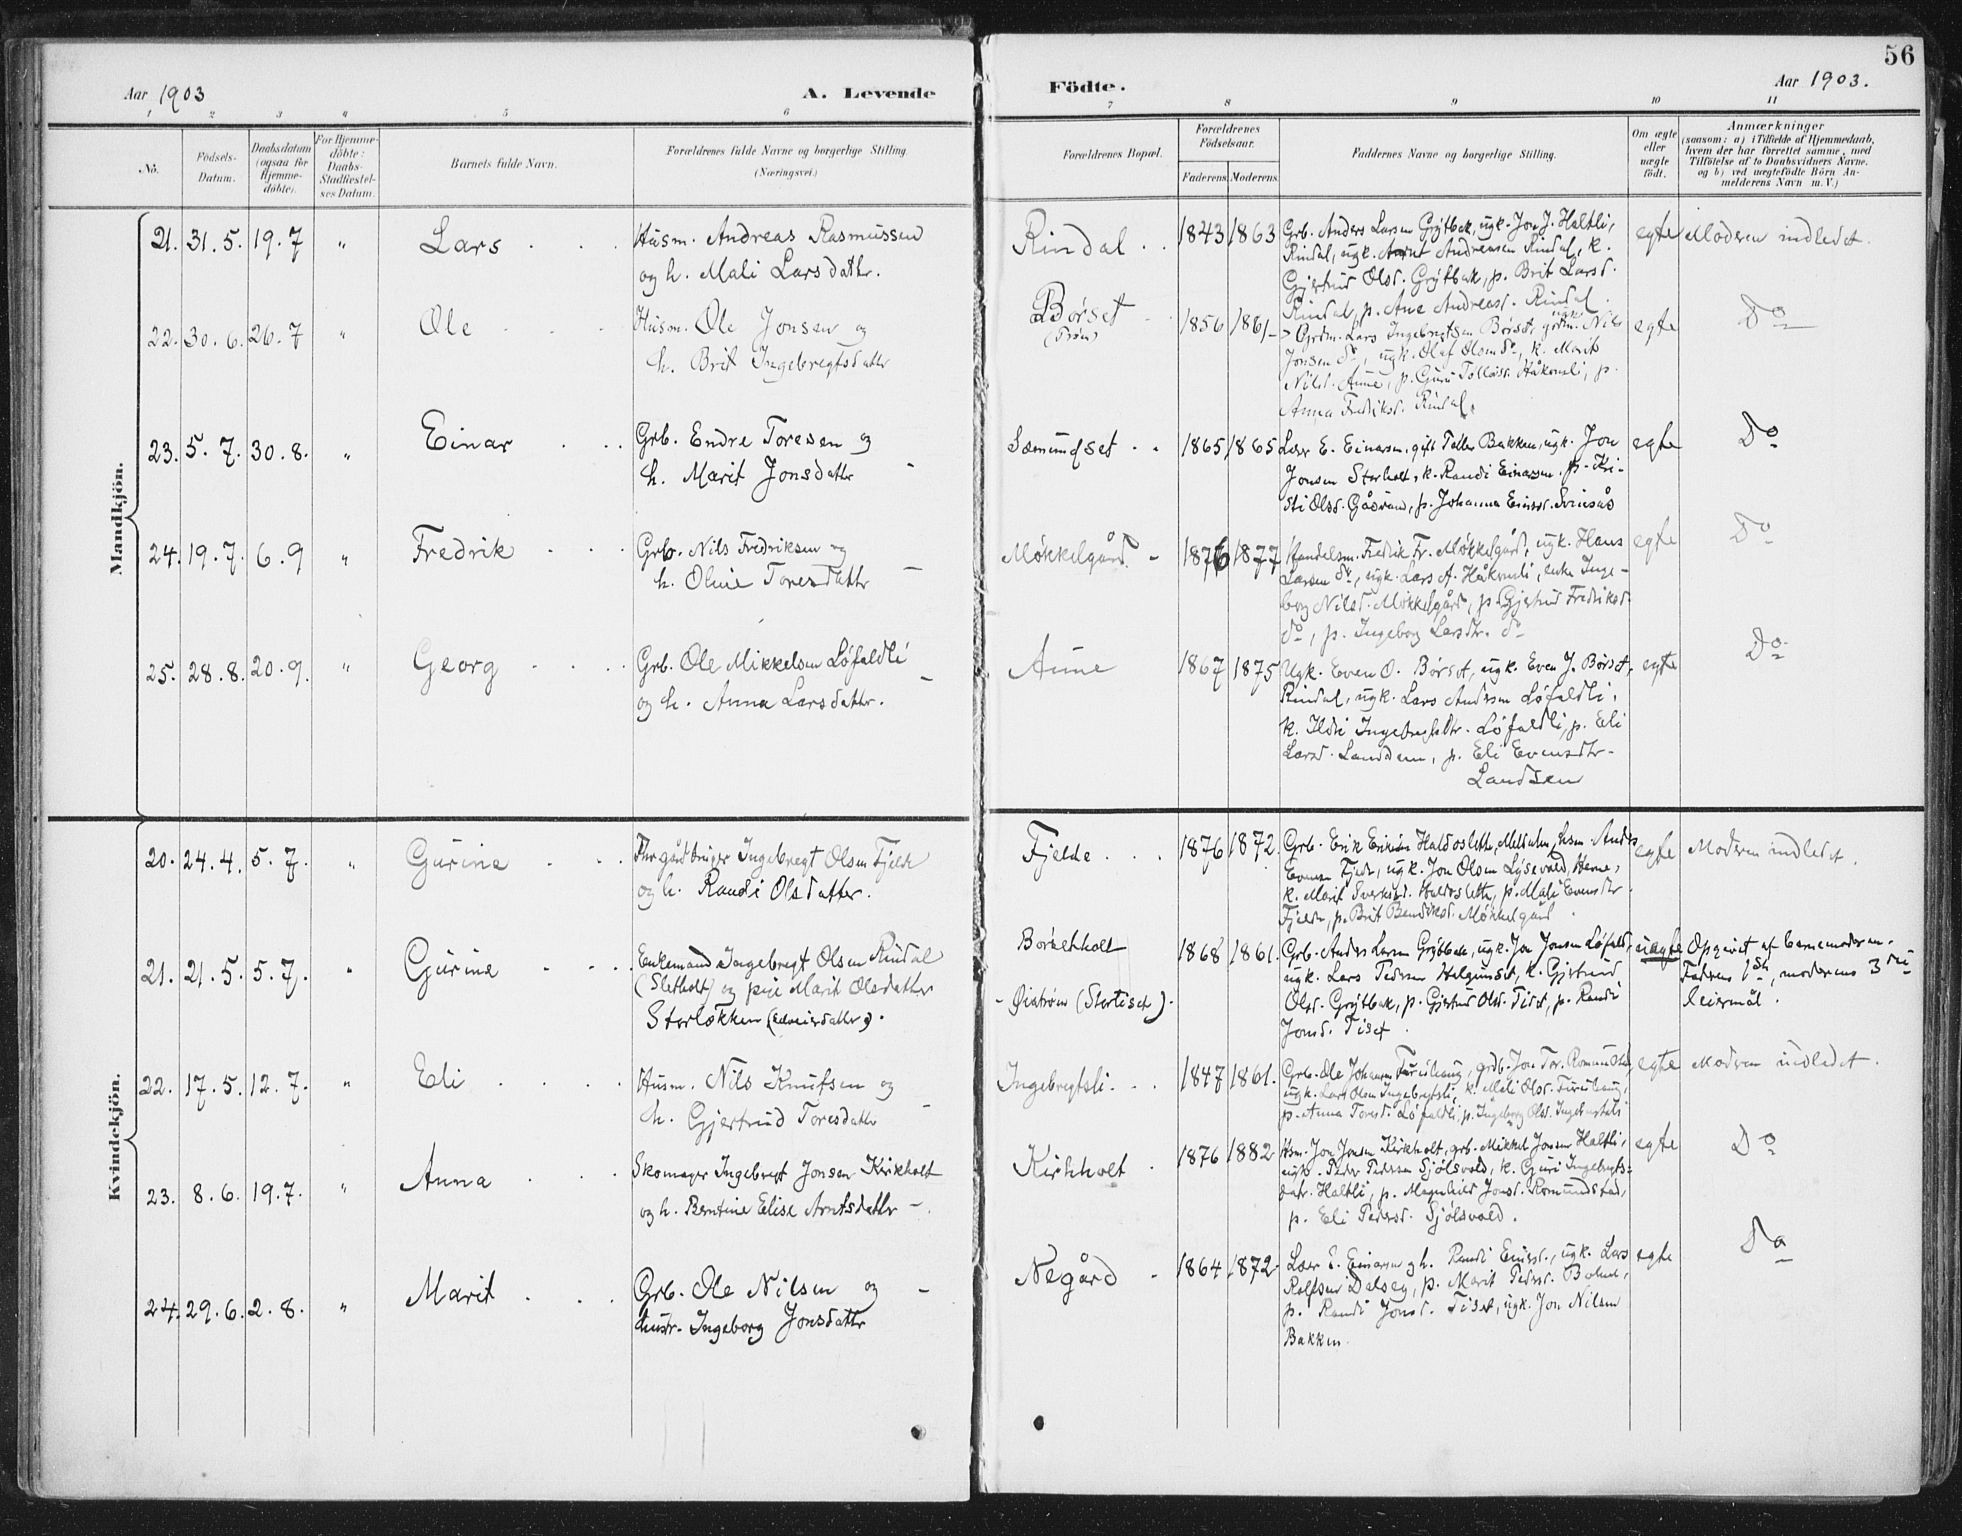 56
Aar 1903
A. Levende
Födte.
Aar 1903.
1 2 3 4 5 6 7 8 9 10 11
No.
Födsels-Datum.
Daabsdatum (ogsaa for Hjemme-döbte).
For Hjemme-döbte: Daabs-Stadfæstel-ses Datum.
Barnets fulde Navn.
Forældrenes fulde Navne og borgerlige Stilling.
(Næringsvei.)
Forældrenes Bopæl.
Forældrenes Födselsaar.
Faderens. Moderens.
Faddernes Navne og borgerlige Stilling.
Om ægte eller uægte födt.
Anmærkninger
(saasom: a) i Tilfælde af Hjemmedaab,
hvem der har forrettet samme, med
Tilföielse af to Daabsvidners Navne.
og b) ved uægtefödte Börn An-
melderens Navn m. V.)
Mandkjön.
21. 31. 5. 19. 7 " Lars
Husm. Andreas Rasmussen
og h. Mali Larsdatter.
Rindal
1843 1863
Grb. Anders Larsen Grýtbak, ugk. Jon J. Haltli,
Rindal, ugk. Arnt Andreasen Rindal, k.
Gjertrud Olsd. Grýtbak, p. Brit Larsd.
Rindal, p. Ane Andreasd. Rindal.
egte
Moderen indledet.
22. 30. 6. 26. 7 " Ole
Husm. Ole Jonsen og
h. Brit Ingebregtsdatter
Børset
(Trøen)
1856 1861
Grdm. Lars Ingebregtsen Børset, grdm. Nils
Jonsen do, ugk. Olaf Olsen do, k. Marit
Nilsd. Aune, p. Guru Tolleisd. Håkonsli, p.
Anna Fredriksd. Rindal.
egte
Do
23. 5. 7. 30. 8. " Einar
Grb. Endre Toresen og
h. Marit Jonsdatter
Sæmundset
1865 1865
Lærer E. Einarsen, gift Bakken, ugk. Jon
Jonsen Storholt, k. Randi Einarsen, p. Kri-
sti Olsd. Gåsvand, p. Johanna Svinsås
egte
Do
24. 19. 7. 6. 9 " Fredrik
Grb. Nils Fredriksen og
h. Oline Toresdatter
Møkkelgård
1876 1877
Handelsm. Fredrik Fr. Møkkelgård, ugk. Hans
Larsen do, ugk. Lars A. Håkonsli, enke Inge-
borg Nilsd. Møkkelgård, p. Gjertrud Fredriksd.
do, p. Ingeborg Larsdtr. do
egte
Do
25. 28. 8. 20. 9. " Georg
Grb. Ole Mikkelsen Løfaldli
og h. Anna Larsdatter.
Aune
1867 1875
Ugk. Even O. Børset, ugk. Even J. Børset,
Rindal, ugk. Lars Andersen Løfaldli,
k. Ildri Ingebregtsdtr. Løfaldli, p. Eli
Larsd. Landsem, p. Eli Evensdtr.
Landsem
egte
Do
Kvindekjön.
20. 24. 4. 5. 7. " Gurine
Forgårdbruger Ingebregt Olsen Fjelde
og h. Randi Olsdatter.
Fjelde
1876 1872.
Grb. Erik Eriksen Haldoslette, Meldalen, Anders
Evensen Fjelde, ugk. Jon Olsen Lýsevold, Herne,
k. Marit Sverkesd. Haldoslette, p. Mali Evensdtr
Fjelde, p. Brit Bendiksd. Møkkelgård
egte
Moderen indledet.
21. 21. 5. 5. 7. " Gurine
Enkemand Ingebregt Olsen Rindal
(Sletholt) og pige Marit Olsdatter
Storløkken
Børsethholt
- Øiatrøen (Stortiset).
1868 1861.
Grb. Anders Larsen Grýtbak, ugk. Jon Jonsen Løfald,
ugk. Lars Pedersen Helgunset, k. Gjertrud
Olsd. Grýtbak, p. Gjertrud Olsd. Tiset, p. Randi
Jonsd. Tiset.
uegte
Opgivet af barnemoderen.
Faderens 1ste, moderens 3die
leiermål.
22. 17. 5. 12. 7. " Eli
Husm. Nils Knutsen og
h. Gjertrud Toresdatter
Ingebregtsli
1847 1861.
Grb. Ole Johansen Furuhaug, grdb. Jon Tor. Romundstad,
ugk. Lars Olsen Ingebregtsli, k. Mali Olsd. Furuhaug,
p. Anna Toresd. Løfaldli, p. Ingeborg Olsd. Ingebregtsli
egte
Moderen indledet.
23. 8. 6. 19. 7. " Anna
Skomager Ingebregt Jonsen Kirkholt
og h. Berntine Elise Arntsdatter
Kirkholt
1876 1882
Hsm. Jon Jonsen Kirkholt, grb. Mikkel Jonsen Haltli,
ugk. Peder Pedersen Sjølsvold, k. Guri Ingebregts-
datr. Haltli, p. Magnhild Jonsd. Romundstad,
p. Eli Pedersd. Sjølsvold.
egte
Do
24. 29. 6. 2. 8. " Marit
Grb. Ole Nilsen og
hustr. Ingeborg Jonsdatter
Negård
1864 1872
Lærer E. Einarsen og h. Randi Einarsd., ugk. Lars
Rolfsen Dalseg, p. Marit Pedersd. Bolme,
p. Randi Jonsd. Tiset, ugk. Jon Nilsen
Bakken.
egte
Do